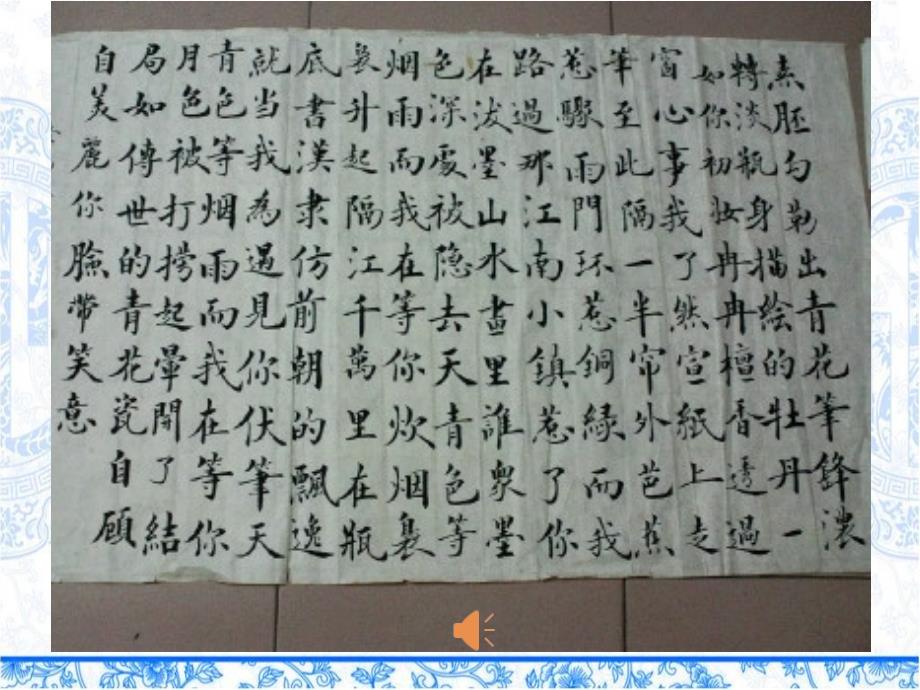 素胚勾勒出青花筆鋒濃
轉淡瓶身描绘的牡丹一
如你初妝冉冉檀香透過
窗心事我了然宣紙上走
筆至此隔一半帘外芭蕉
惹驟雨門环惹銅緑而我
路過那江南小鎮惹了你
在泼墨山水畫里誰眾墨
色深處被隐去天青色等
烟雨而我在等你炊烟袅
袅升起隔江千萬里在瓶
底書漢隶仿前朝的飄逸
就當我為遇見你伏筆天
青色等烟雨而我在等你
月色被打撈起暈開了結
局如傳世的青花瓷自顧
自美麗你臉帶笑意